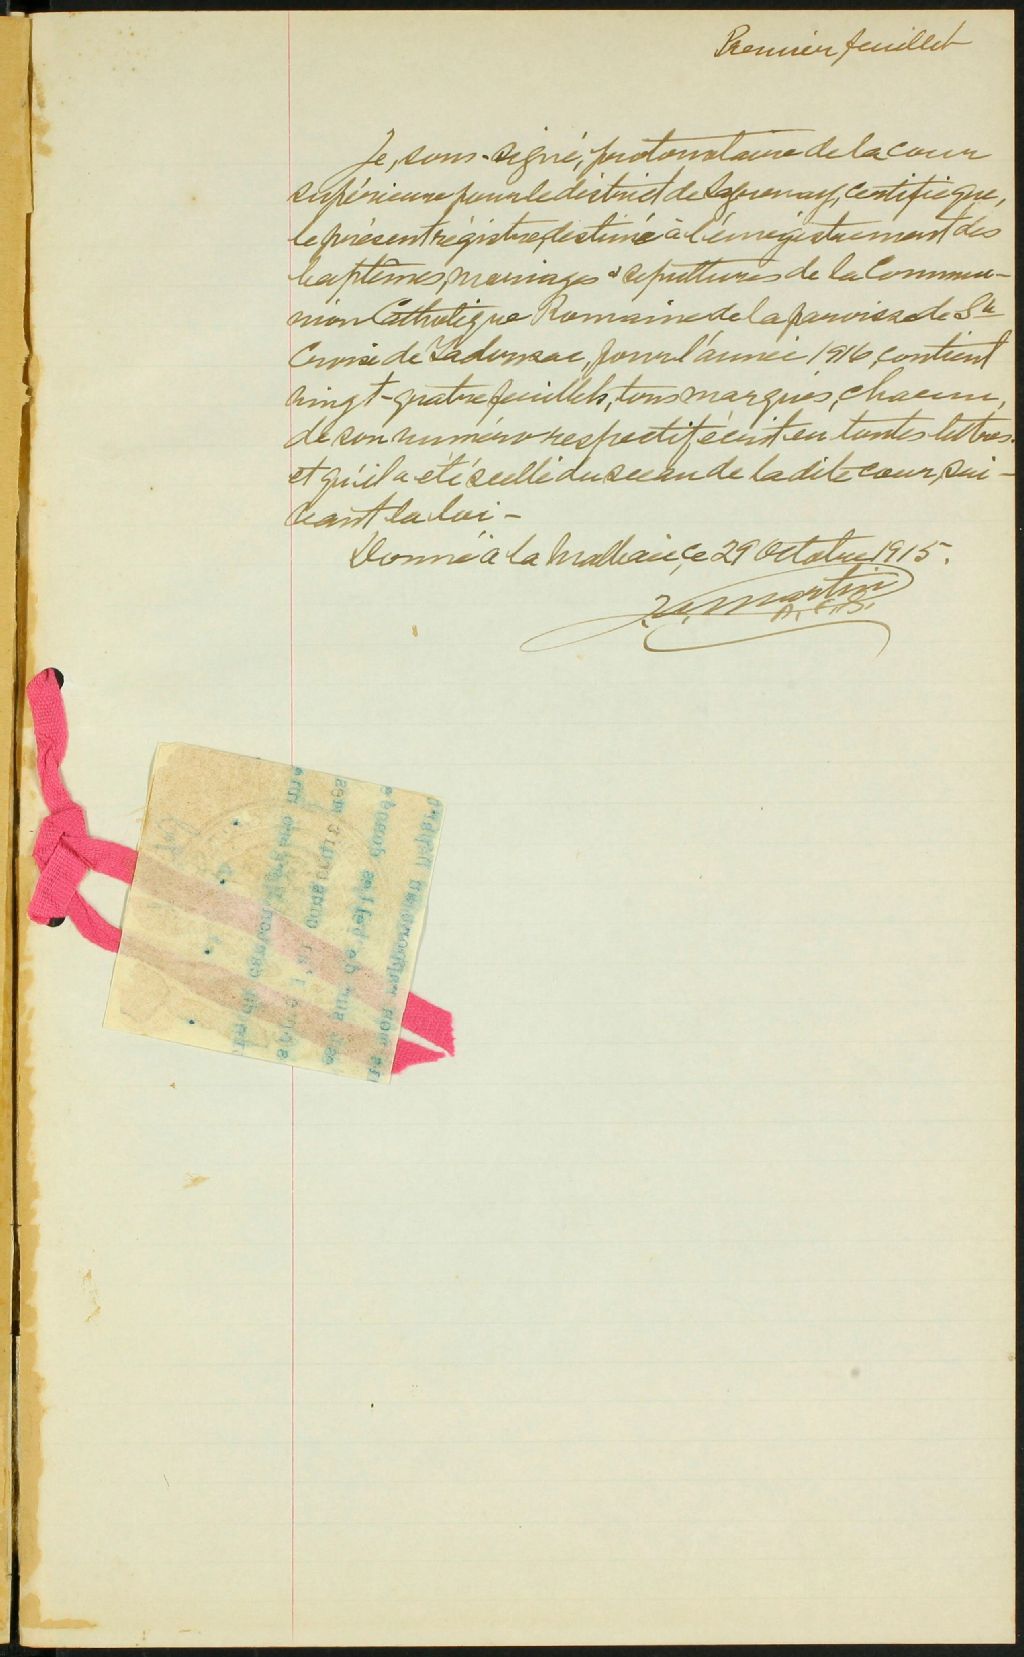 Premier feuillet
Je, sous-signé, protonotaire de la cour
supérieure pour le district de Saguenay, certifie que,
le présent régistre, destiné à l'énrégistrement des
baptêmes, mariages & sépultures de la Commu-
nion Catholique Romaine de la paroisse de Ste
Croix de Tadousac, pour l'année 1916, contient
vingt-quatre feuillets, tous marqués, chacun,
de son numéro respectif, écrit en toutes lettres
et qu'il a été scellé du sceau de la dite cour, sui-
vant la loi -
Donné à la Malbaie, ce 29 Octobre 1915.
Martin